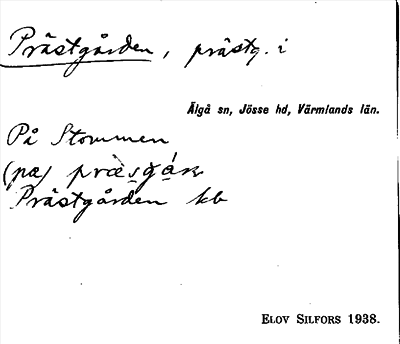 Prästgården, prästg. i
Älgå sn, Jösse hd, Värmlands län.
På Stommen
(pæ)
Prästgården kb
ELOV SILFORS 1938.